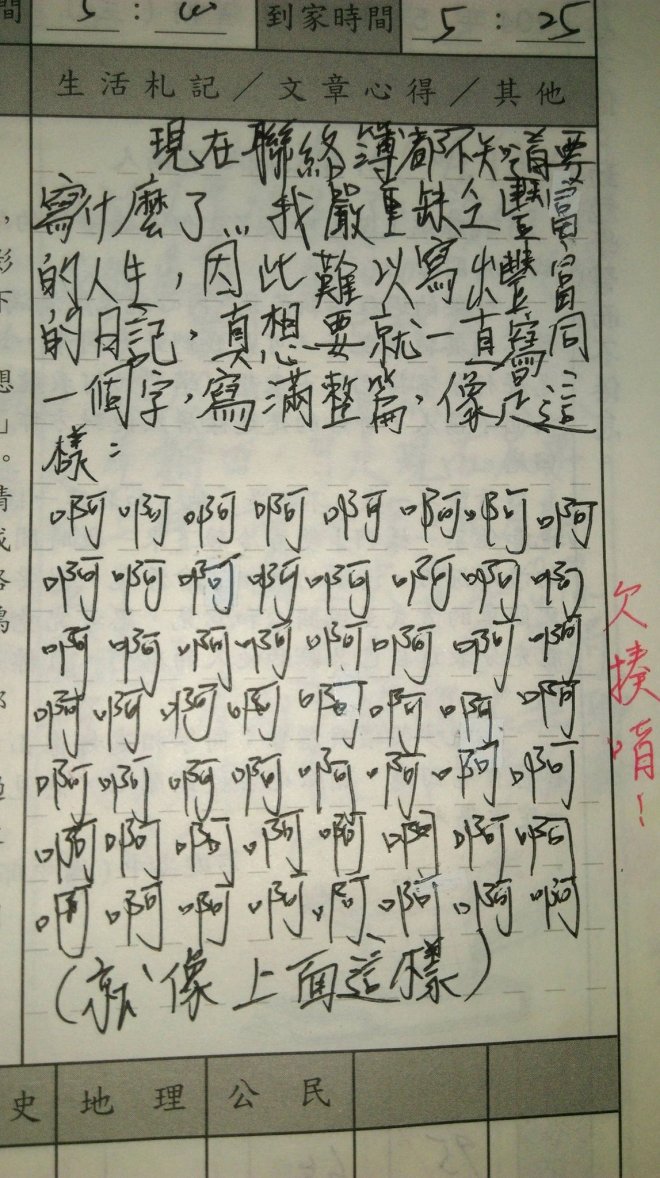 間 5 : 到家時間 5 : 25
生活札記／文章心得／其他
現在聯絡簿都不知道要
寫什麼了...我嚴重缺乏豐富
的人生，因此難以寫出豐富
的日記，真想要就一直寫同
一個字，寫滿整篇，像是這
樣：
啊啊啊啊啊啊啊啊
啊啊啊啊啊啊啊啊
啊啊啊啊啊啊啊啊
啊啊啊啊啊啊啊啊
啊啊啊啊啊啊啊啊
啊啊啊啊啊啊啊啊
啊啊啊啊啊啊啊啊
（就像上面這樣）
欠揍唷！
史 地理 公民